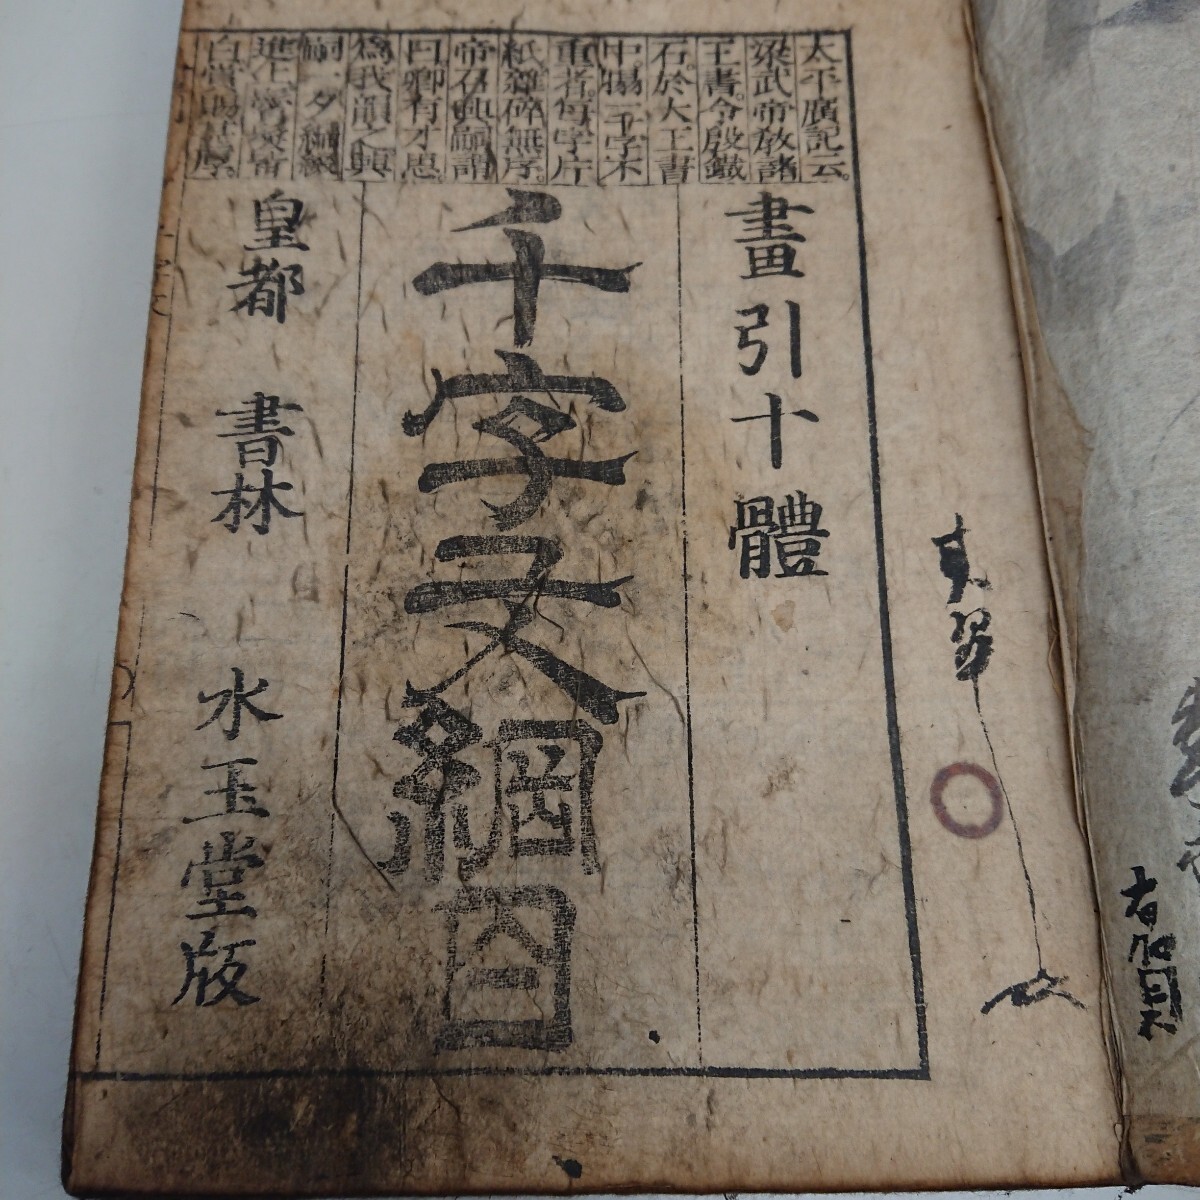 太平廣記云。
梁武帝教諸
王書。令殷鐵
石。於大王書
中。賜一千字不
重者。每字片
紙。雜碎無序。
帝召興嗣謂
曰卿有才思。
為我韻之興
嗣一夕編綴
進上鬢髮皆
白賞賜甚厚。
畫引十體
千字文綱目
皇都 書林 水玉堂版